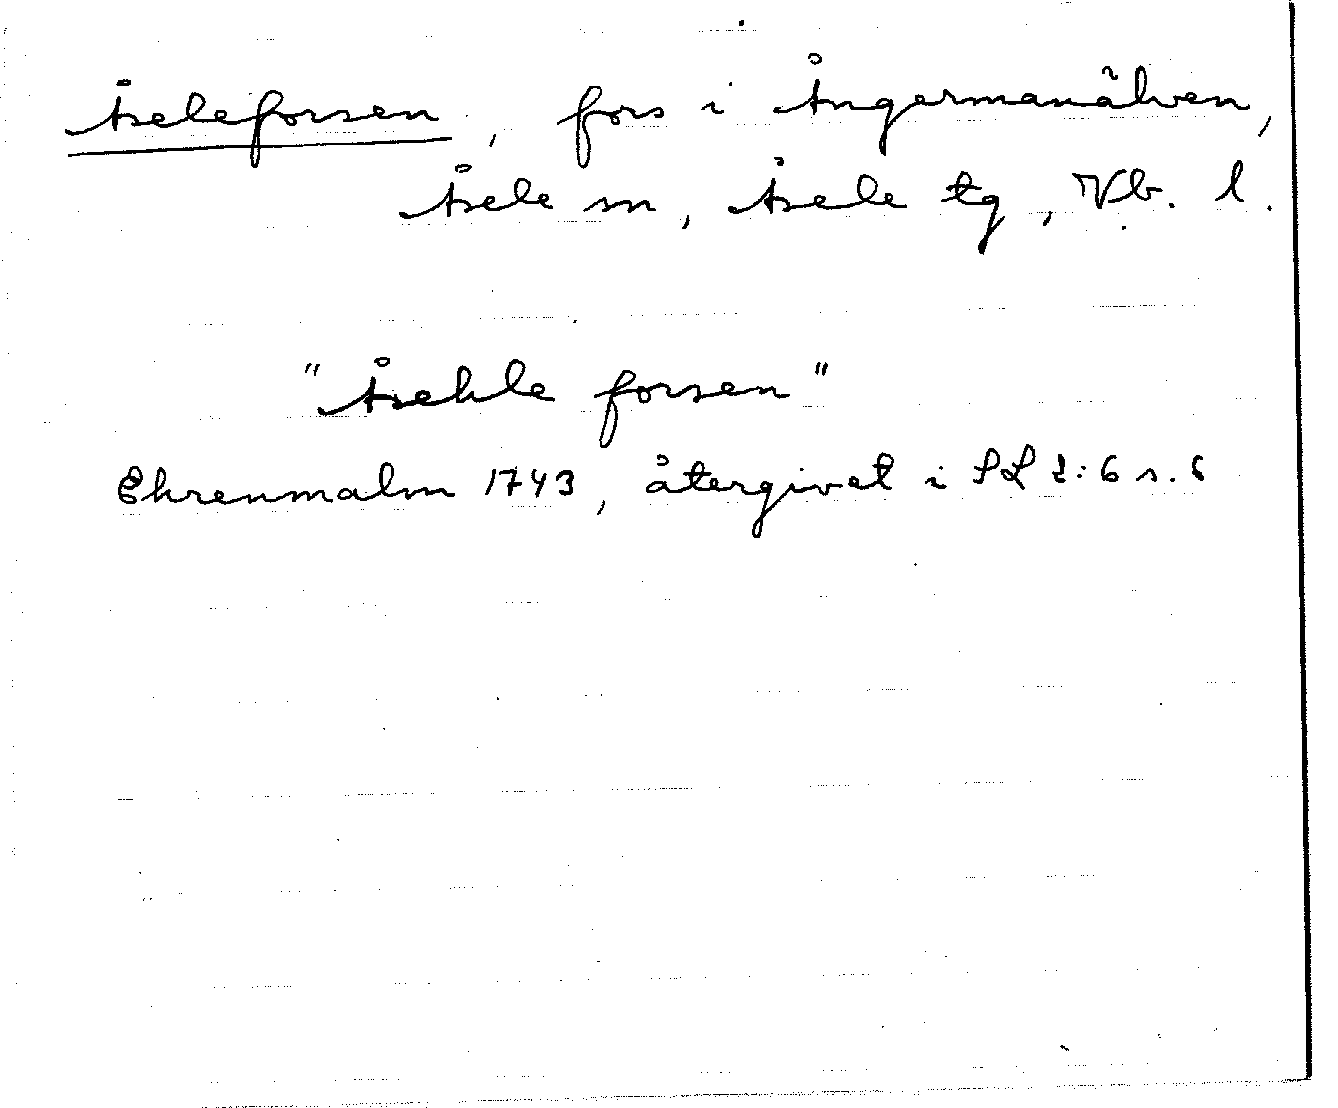 Åseleforsen, fors i Ångermanälven,
Åsele sn, Åsele tg, Vb. l.
"Åsehle forsen"
Ehrenmalm 1743, återgivet i SL 2:6 s. 6